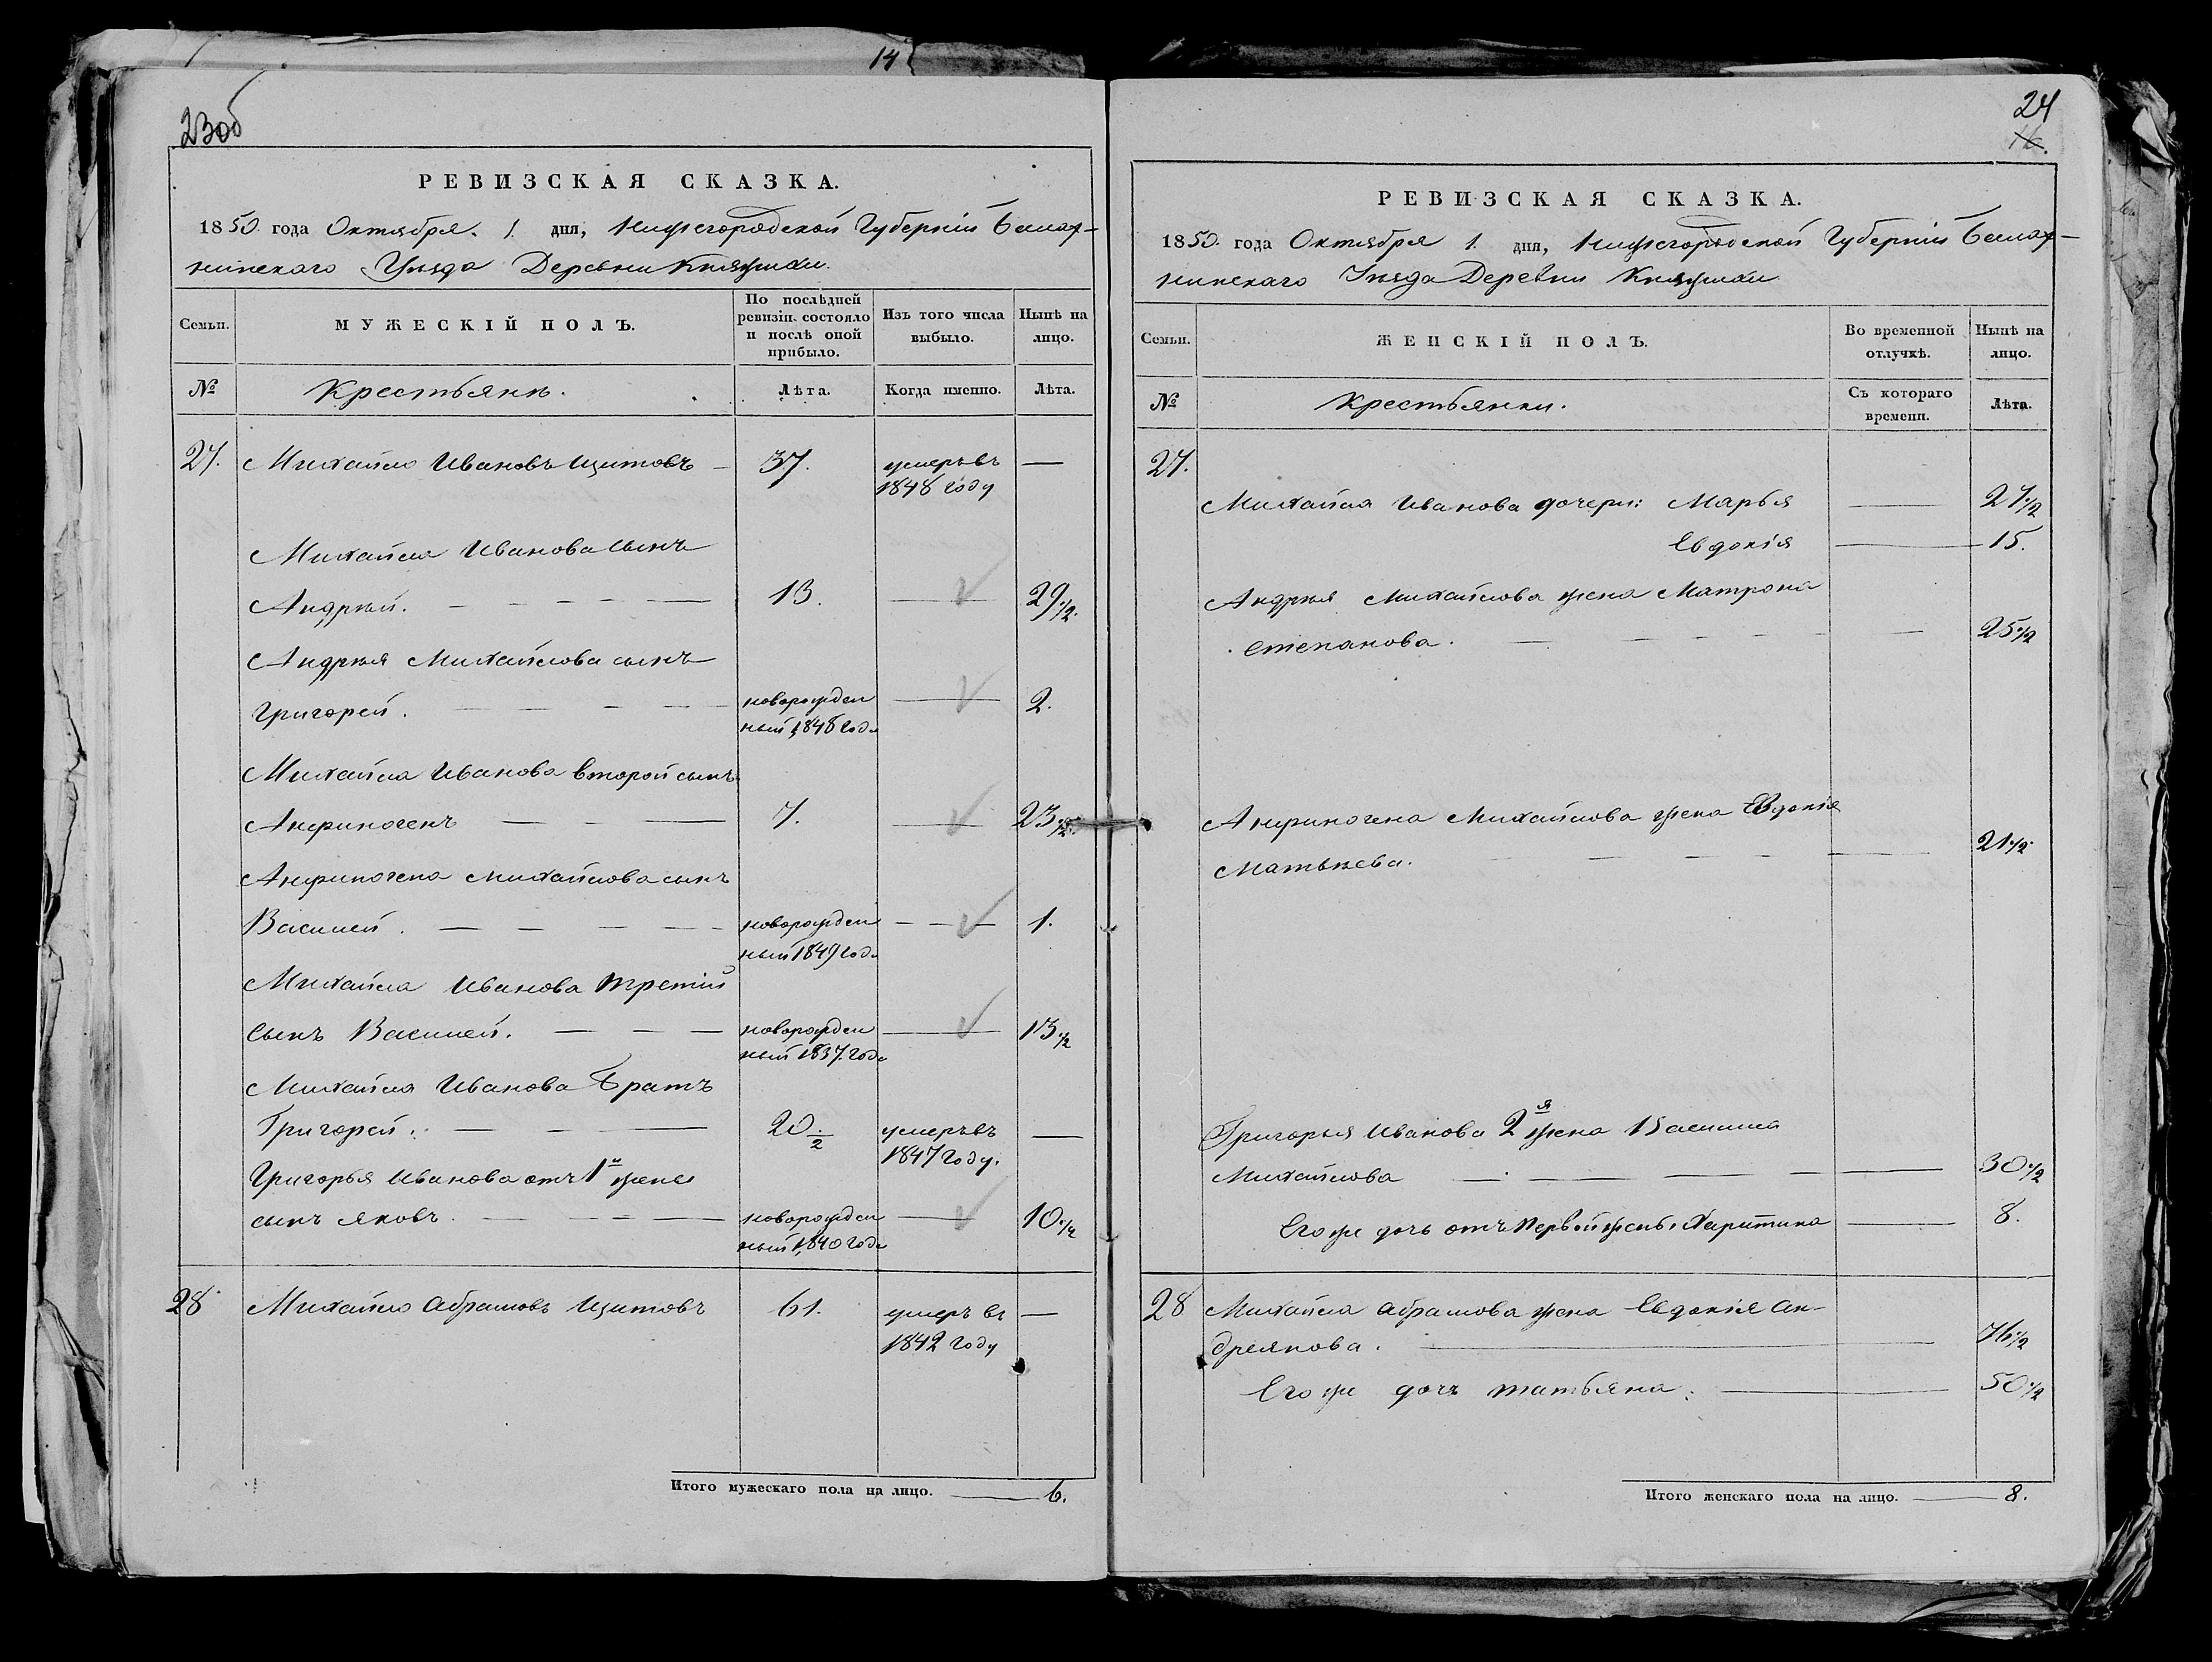 14
23 об
РЕВИЗСКАЯ СКАЗКА.
1850 года Октября 1 дня, Нижегородской Губерніи Балах-
нинскаго Уѣзда Деревни Княжихи.
Семьи.
МУЖЕСКІЙ ПОЛЪ.
По послѣдней ревизіи состояло и послѣ оной прибыло.
Изъ того числа выбыло.
Нынѣ на лицо.
№
Крестьянѣ.
Лѣта.
Когда именно.
Лѣта.
27. Михайло Ивановъ Щитовъ — 37. умеръ въ —
1848 году
Михайла Иванова сынъ
Андрѣй. 13. — 29 1/2.
Андрѣя Михайлова сынъ
Григорей. новорожден — 2.
ный 1848 года
Михайла Иванова второй сынъ
Анфиногенъ 7. — 23 1/2.
Анфиногена Михайлова сынъ
Василей. новорожден — 1.
ный 1849 года
Михайла Иванова третій
сынъ Василей. новорожден — 13 1/2
ный 1837 года
Михайла Иванова братъ
Григорей. 20 1/2 умеръ въ —
1847 году.
Григорья Иванова отъ 1й жены
сынъ Яковъ. новорожден — 10 1/2
ный 1840 года
28 Михайло Абрамовъ Щитовъ 61. умеръ въ —
1842 году
Итого мужескаго пола на лицо. — 6.
24
16.
РЕВИЗСКАЯ СКАЗКА.
1850 года Октября 1 дня, Нижегородской Губерніи Балах-
нинскаго Уѣзда Деревни Княжихи
Семьи.
ЖЕНСКІЙ ПОЛЪ.
Во временной отлучкѣ.
Нынѣ на лицо.
№
Крестьянки.
Съ котораго времени.
Лѣта.
27.
Михайла Иванова дочери: Марья — 27 1/2
Евдокія — 15.
Андрѣя Михайлова жена Матрона
Степанова. — 25 1/2
Анфиногена Михайлова жена Евдокія
Матвѣева. — 21 1/2
Григорья Иванова 2я жена Василиса
Михайлова — 30 1/2
Его же дочь отъ первой жены Харитина — 8.
28 Михайла Абрамова жена Евдокія Ан-
дреянова. — 76 1/2
Его же дочь Татьяна. — 50 1/2
Итого женскаго пола на лицо. — 8.